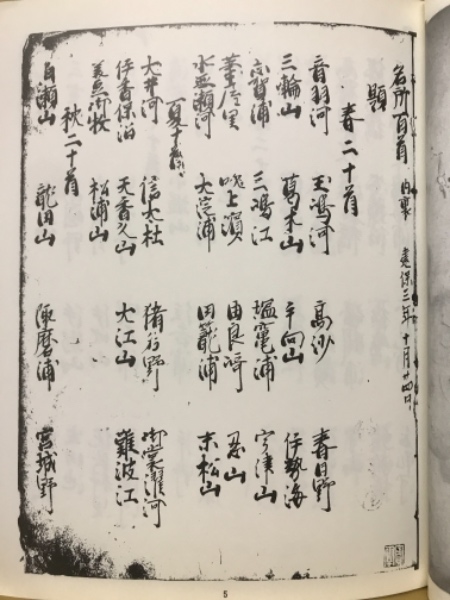 名所百首 内裏 建保三年十月廿四日
題
春二十首
音羽河 玉嶋河 高沙 春日野
三輪山 葛木山 手向山 伊勢海
志賀浦 三嶋江 塩竈浦 宇津山
葦屋里 吹上濱 由良崎 忍山
水無瀬河 大淀浦 田籠浦 末松山
夏十首
大井河 信太杜 猪名野 御裳濯河
伊香保沼 天香久山 大江山 難波江
美豆御牧 松浦山
秋二十首
泊瀬山 龍田山 須磨浦 宮城野
5